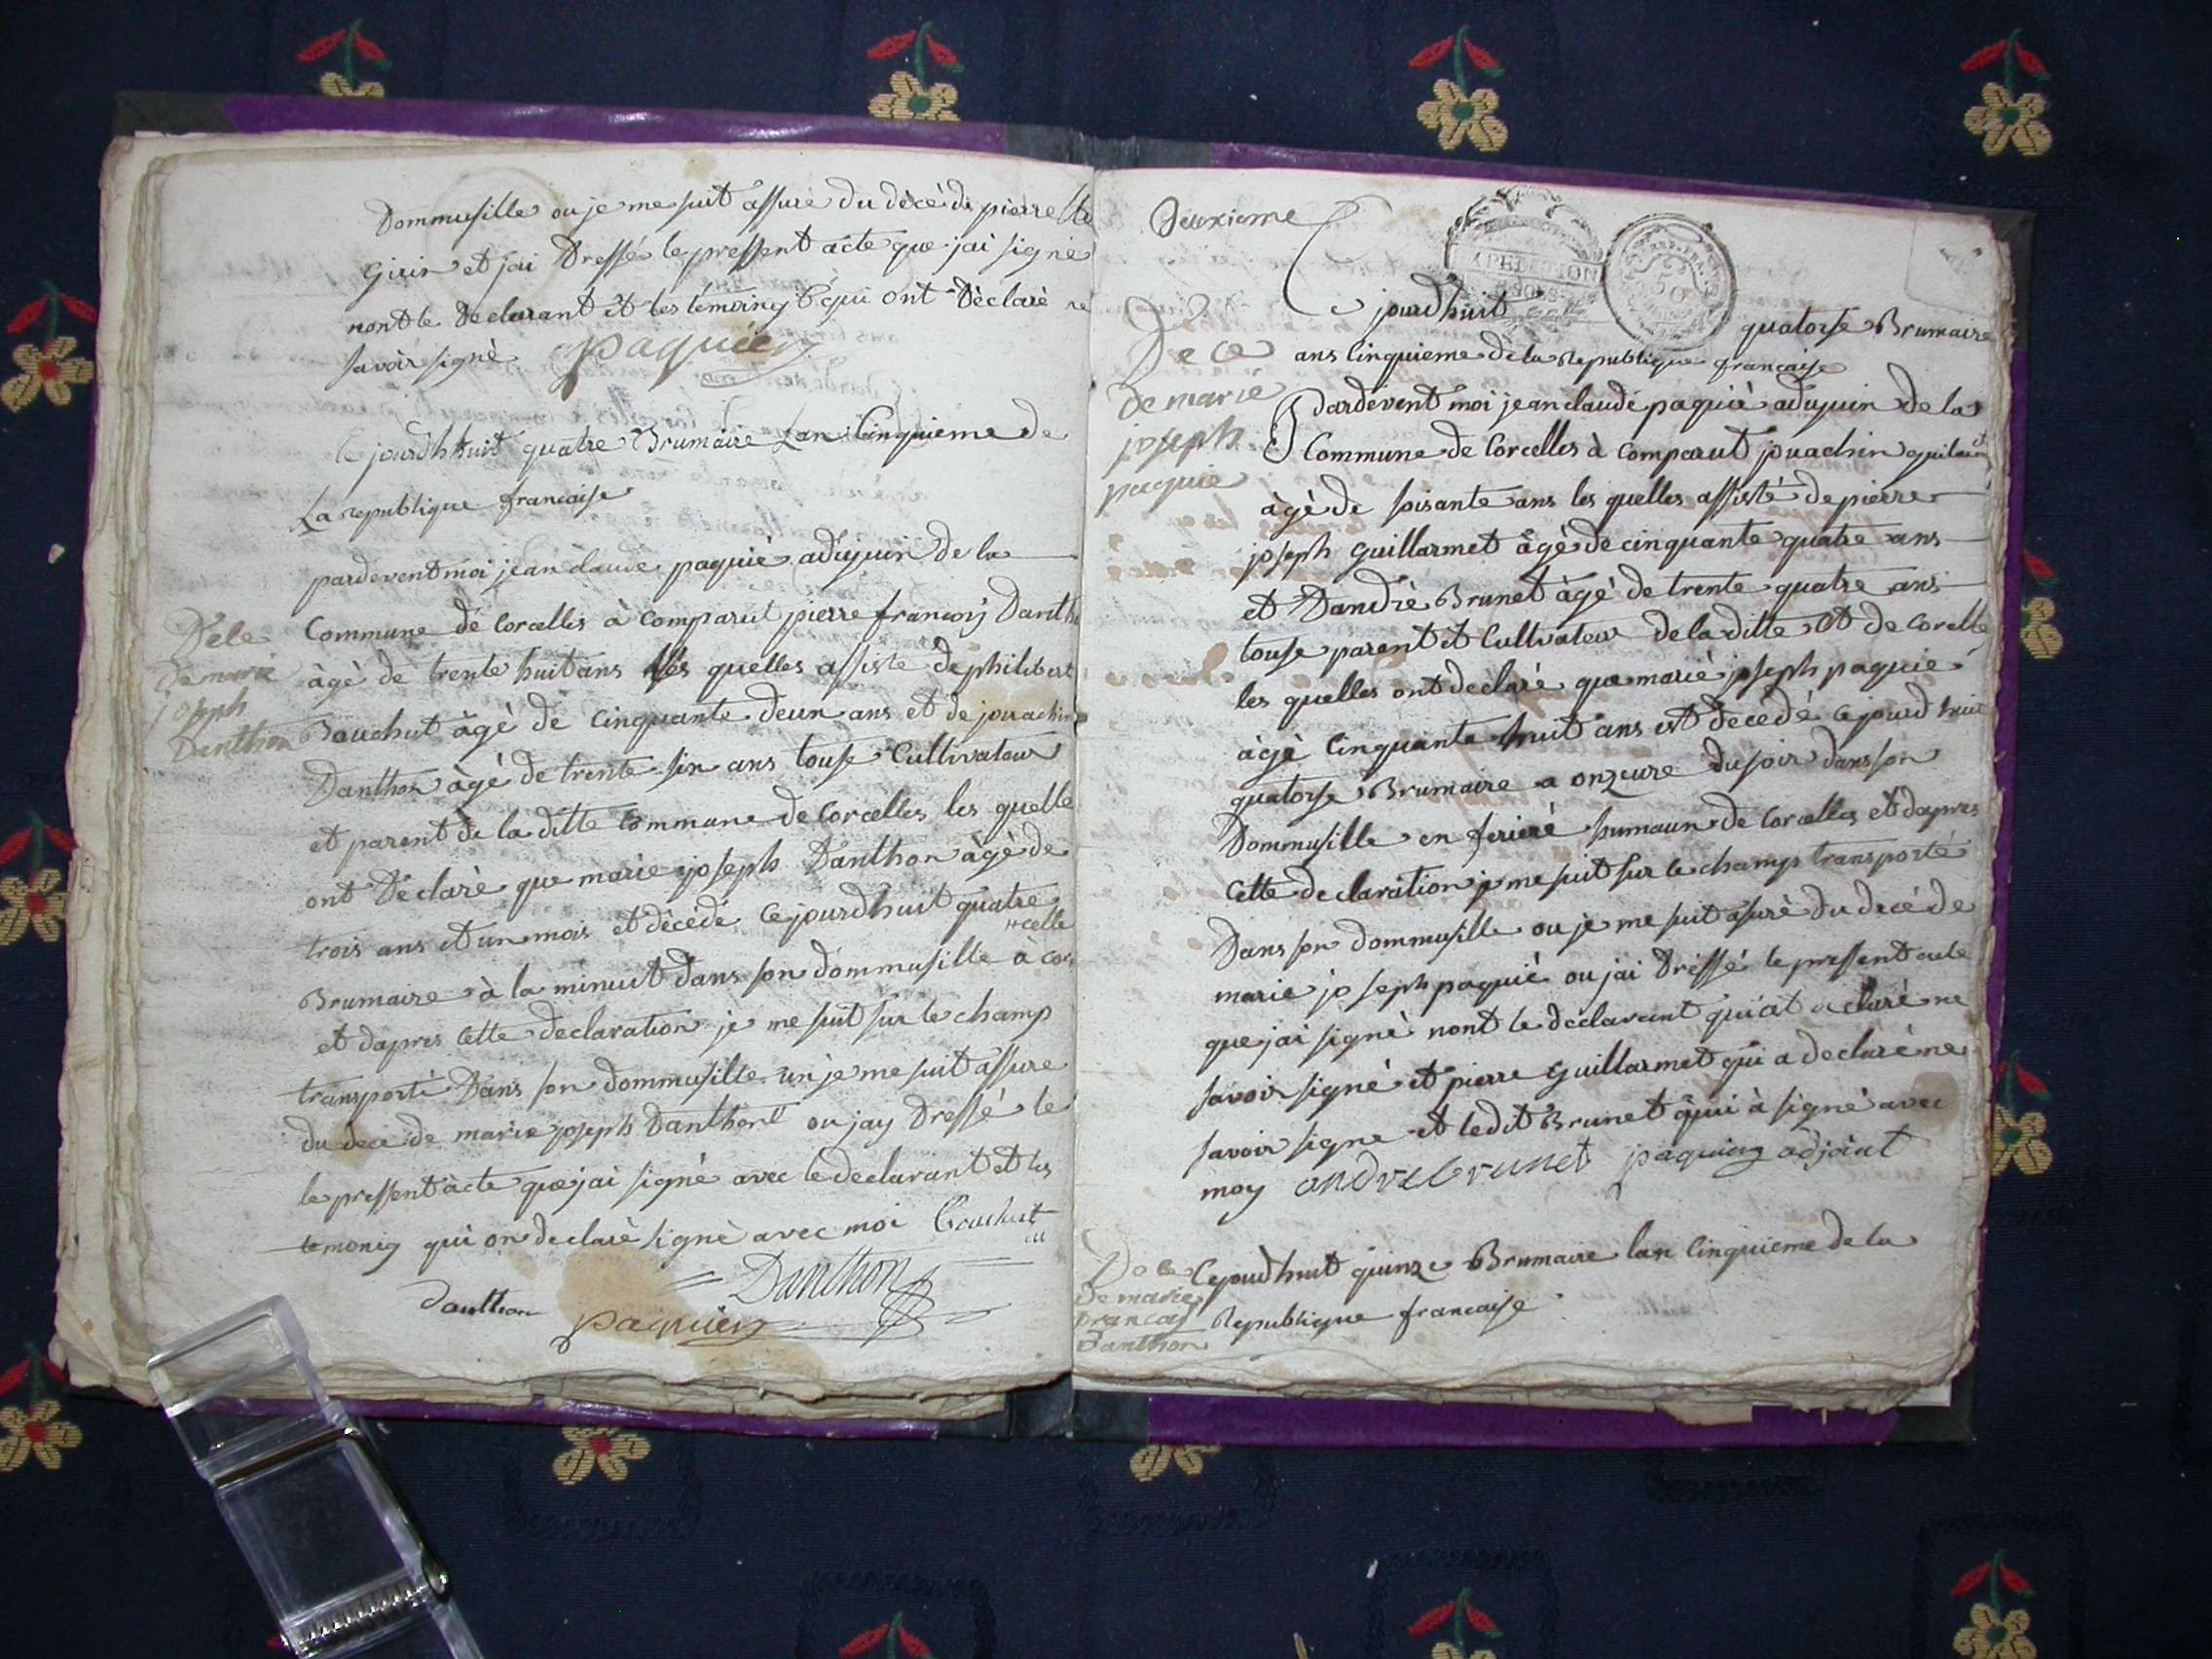 Dommusille ou je me suit assuré du décè de pierre
Girin et jai Dressé le pressent acte que jai signé
nont le Declarant et les temoiny qui ont Déclaré ne
savoir signé paquiey
Ce jourdhhuit quatre Brumaire Lan Cinquieme de
La republique francaise
pardevent moi jean claude paquié adujuin de la
Commune de Corcelles à Comparut pierre francoij Danthon
âgé de trente huit ans les quelles assisté de philibert
Bouchut âgé de Cinquante deux ans et de jouachin
Danthon âgé de trente six ans touse Cultivateur
et parent de la ditte Commune de Corcelles les quelle
ont Déclaré que marie joseph Danthon âgé de
trois ans et un mois et décédé Ce jourdhuit quatre
Brumaire à la minuit dans son dommusille à cor
celle
et dapres Cette declaration je me suit sur le champ
transporté Dans son dommusille un je me suit assure
du dece de marie joseph Danthont ou jay Dressé le
le pressent acte que jai signé avec le declarant et les
temonig qui on declaré signé avec moi Bouchut
Danthon
Danthon
paquiey
Dele
De marie
joseph
Danthon
Deuxieme
Ce jourdhuit quatorse Brumaire
ans Cinquieme de la Republique francaise
Pardevent moi jean claude paquié adujuin de la
Commune de Corcelles à Comparut jouachin
âgé de soisante ans les quelles assisté de pierre
joseph Guillarmet âgé de cinquante quatre ans
et Dandré Brunet âgé de trente quatre ans
touse parent et Cultivateur de la ditte et de Corcelle
les quelles ont declaré que marie joseph paquie
âgé Cinquante huit ans est decedé Ce jourd huit
quatorse Brumaire a onzeure du soir dans son
Dommusille en de Corcelles et dapres
Cette declaration je me suit sur le champs transporté
Dans son dommusille ou je me suit asuré du decé de
marie joseph paquié ou jai Dressé le pressent acte
que jai signé nont le declarant qui at declaré ne
savoir signé et pierre Guillarmet qui a declaré ne
savoir signe et ledit Brunet qui à signé avec
moy andre brunet paquiey adjoint
De ce
De marie
joseph
paquie
Cejoudhuit quinze Brumaire lan Cinquieme de la
Republique francaise
De ce
De marie
francoy
Danthon